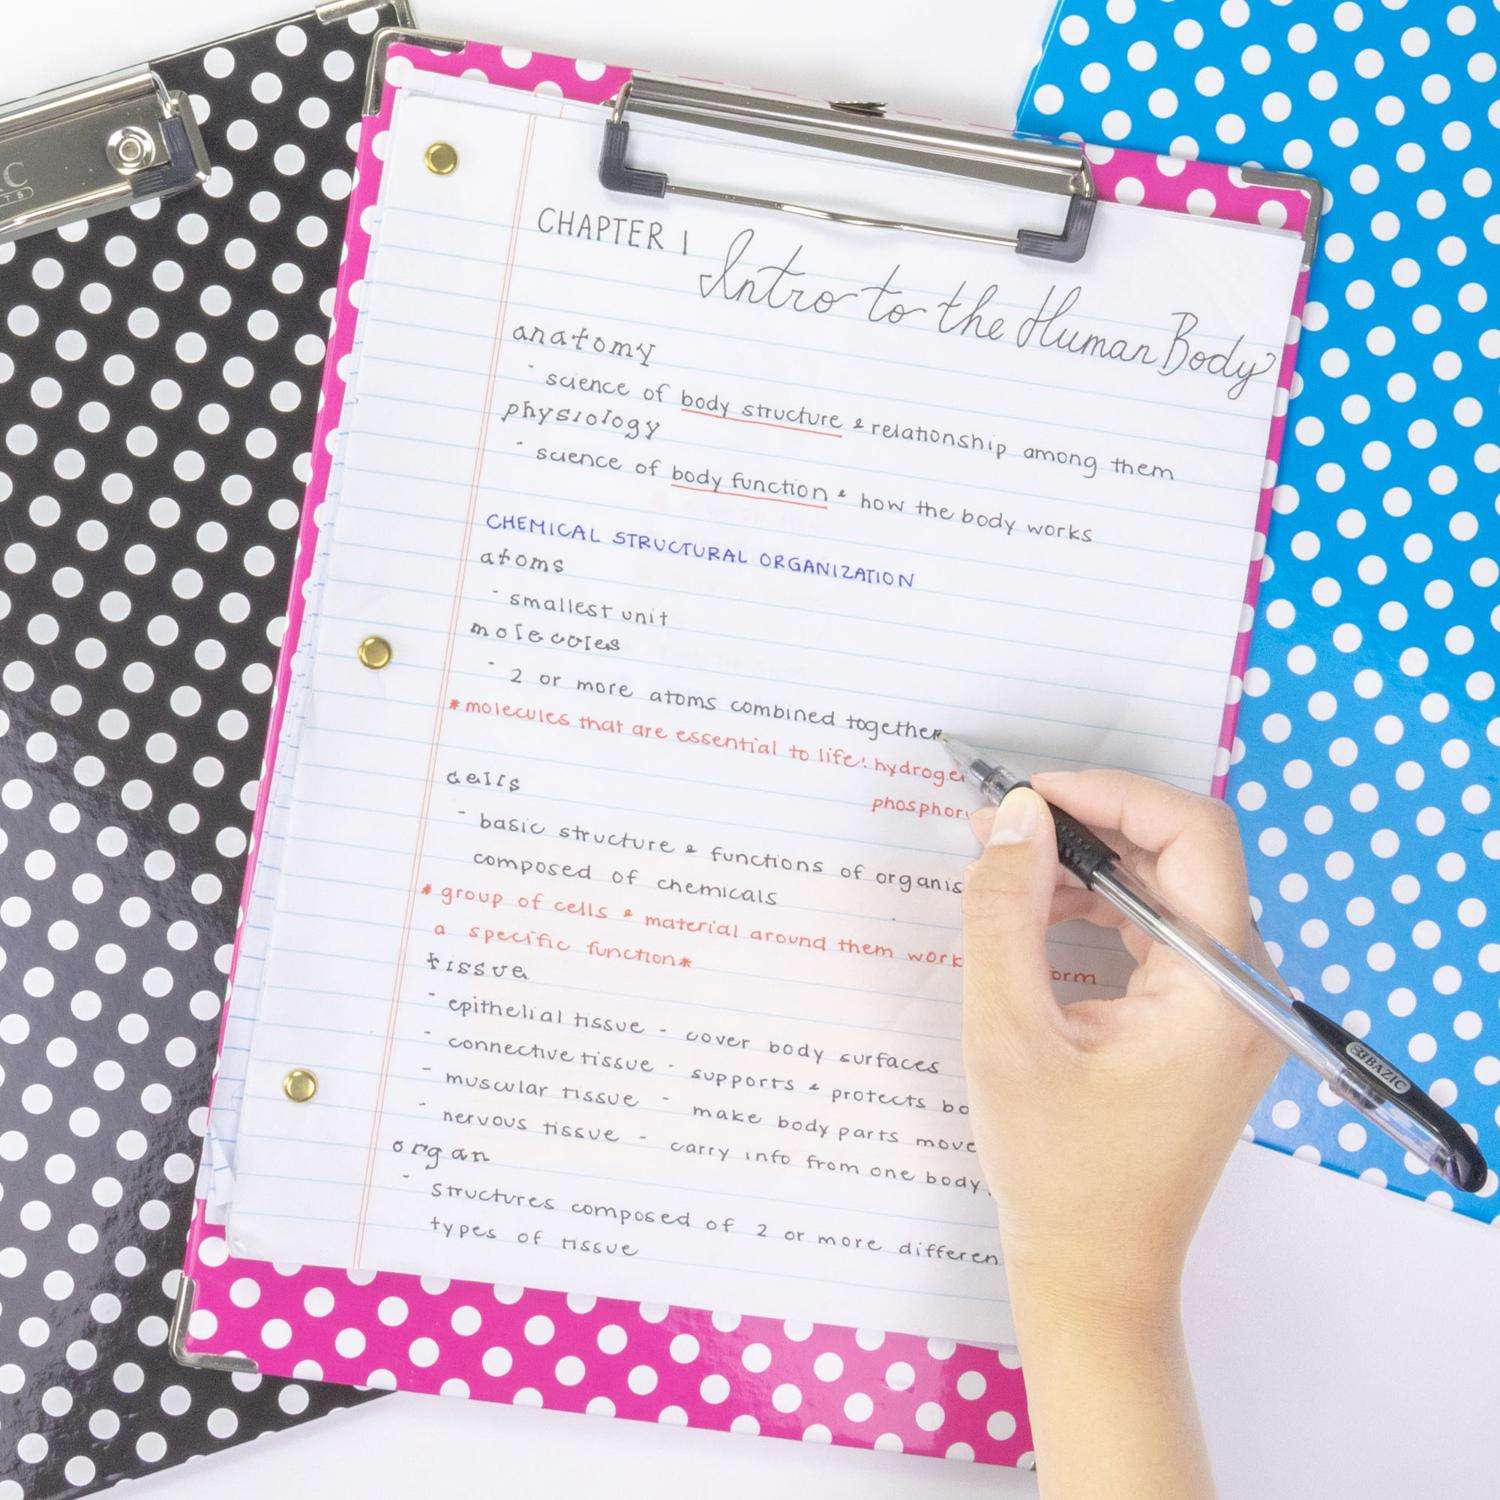 CHAPTER 1 Intro to the Human Body
anatomy
- science of body structure & relationship among them
physiology
- science of body function & how the body works
CHEMICAL STRUCTURAL ORGANIZATION
atoms
- smallest unit
molecules
- 2 or more atoms combined together
*molecules that are essential to life: hydroge
phosphor
cells
- basic structure & functions of organis
composed of chemicals
* group of cells & material around them work form
a specific function*
tissue
- epithelial tissue - cover body surfaces
- connective tissue - supports & protects bo
- muscular tissue - make body parts move
- nervous tissue - carry info from one body
organ
- structures composed of 2 or more differen
types of tissue
BAZIC